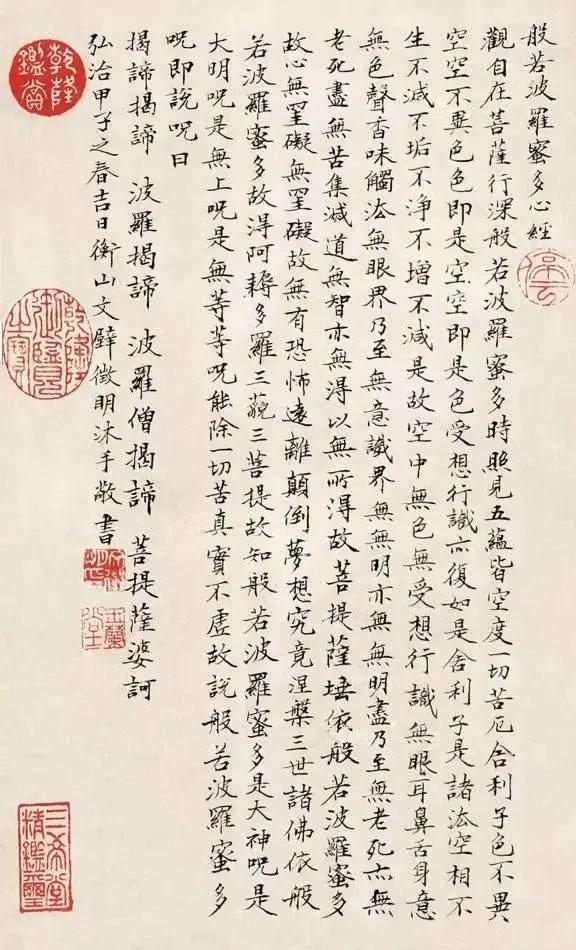 般若波羅蜜多心經
觀自在菩薩行深般若波羅蜜多時照見五蘊皆空度一切苦厄舍利子色不異
空空不異色色即是空空即是色受想行識亦復如是舍利子是諸法空相不
生不滅不垢不淨不增不減是故空中無色無受想行識無眼耳鼻舌身意
無色聲香味觸法無眼界乃至無意識界無無明亦無無明盡乃至無老死亦無
老死盡無苦集滅道無智亦無得以無所得故菩提薩埵依般若波羅蜜多
故心無罣礙無罣礙故無有恐怖遠離顛倒夢想究竟涅槃三世諸佛依般
若波羅蜜多故得阿耨多羅三藐三菩提故知般若波羅蜜多是大神咒是
大明咒是無上咒是無等等咒能除一切苦真實不虛故說般若波羅蜜多
咒即說咒曰
揭諦揭諦 波羅揭諦 波羅僧揭諦 菩提薩婆訶
弘治甲子之春吉日衡山文璧徵明沐手敬書
玉蘭堂
乾隆鑑賞
乾隆御覽之寶
三希堂精鑑璽